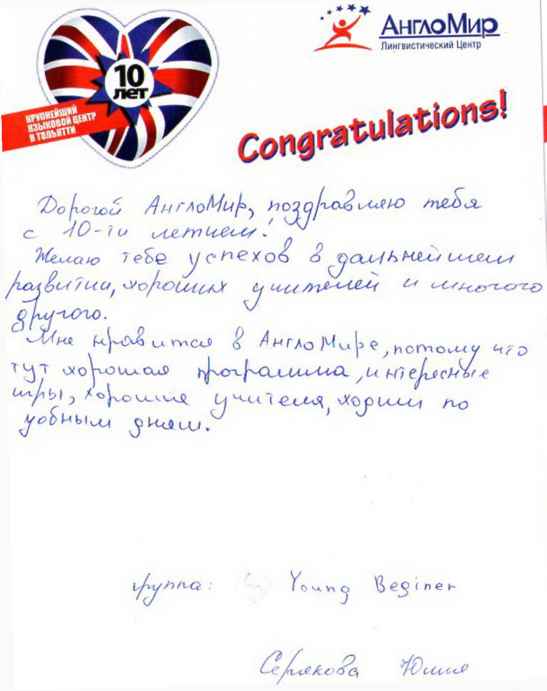 10
лет
КРУПНЕЙШИЙ
ЯЗЫКОВОЙ ЦЕНТР
В ТОЛЬЯТТИ
АнглоМир
Лингвистический Центр
Congratulations!
Дорогой АнглоМир, поздравляю тебя
с 10-ти летием!
Желаю тебе успехов в дальнейшем
развитии, хороших учителей и многого
другого.
Мне нравится в АнглоМире, потому что
тут хорошая программа, интересные
игры, хорошие учителя, ходим по
удобным дням.
группа: Young Beginer
Серякова Юлия